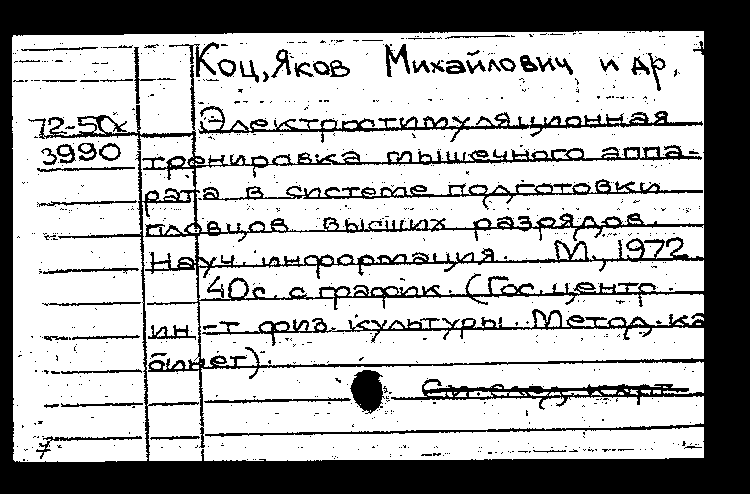 Коц, Яков Михайлович и др.
72-50к
3990
Электростимуляционная
тренировка мышечного аппа-
рата в системе подготовки
пловцов высших разрядов.
Науч. информация. М., 1972.
40с. с график. (Гос. центр.
ин-т физ. культуры. Метод. ка
бинет).
См. след. карт.
7